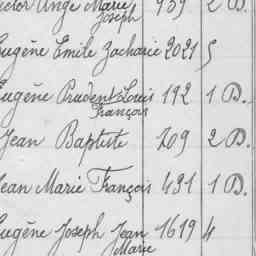 Victor Ange Marie 959 2 D.
Joseph
Eugène Emile Zacharie 2021 5
Eugène Prudent Louis 192 1 D.
François
Jean Baptiste 209 2 D.
Jean Marie François 431 1 D.
Eugène Joseph Jean 1619 4
Marie